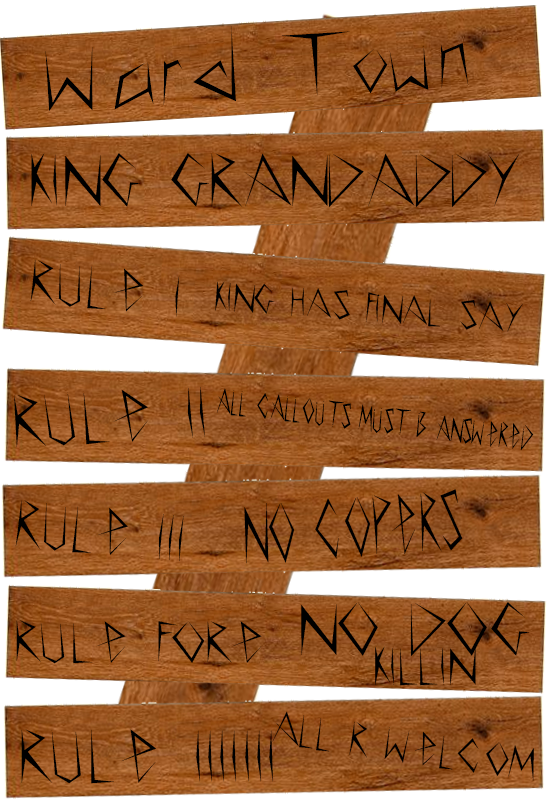 Ward Town
KING GRANDADDY
RULE I KING HAS FINAL SAY
RULE II ALL CALLOUTS MUST B ANSWERED
RULE III NO COPERS
RULE FORE NO DOG
KILLIN
RULE IIIIIII ALL R WELCOM